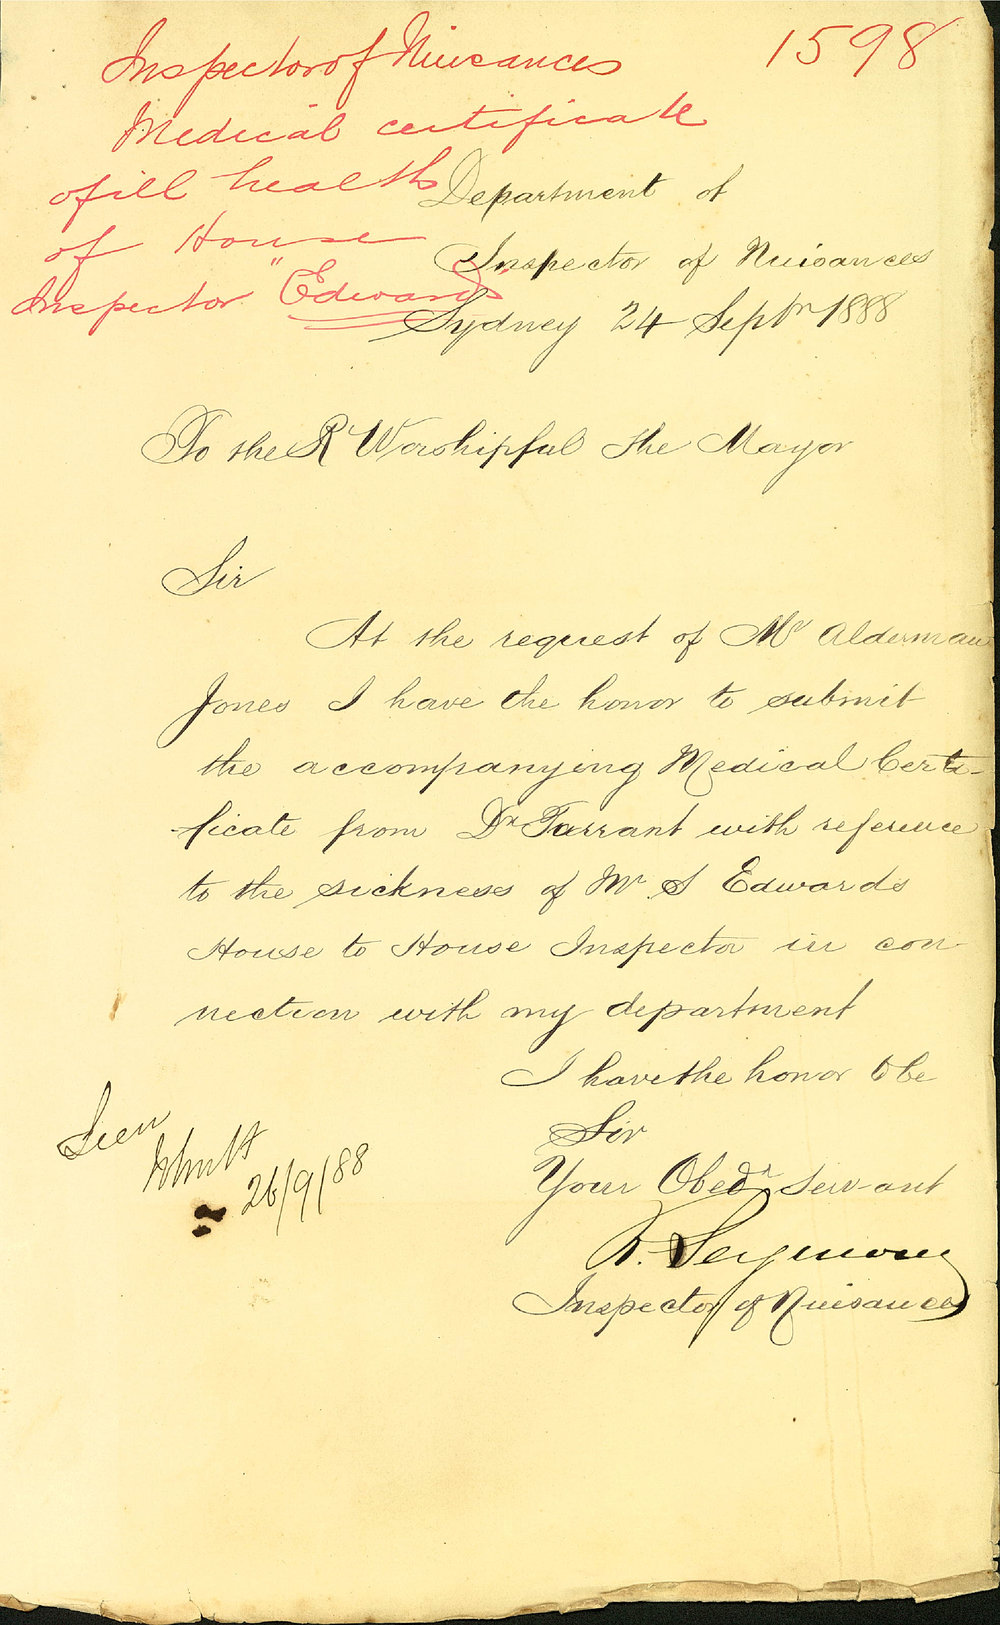 1598
Inspector of Nuisances
Medical certificate
of ill health
of House
Inspector "Edwards
Department of
Inspector of Nuisances
Sydney 24 Septr 1888
To the Rt Worshipful The Mayor
Sir
At the request of Mr Alderman
Jones I have the honor to submit
the accompanying Medical Certi-
ficate from Dr Tarrant with reference
to the sickness of Mr S Edwards
House to House Inspector in con-
nection with my department
I have the honor to be
Sir
Your Obedt Servant
Seymour
Inspector of Nuisances
Seen
26/9/88